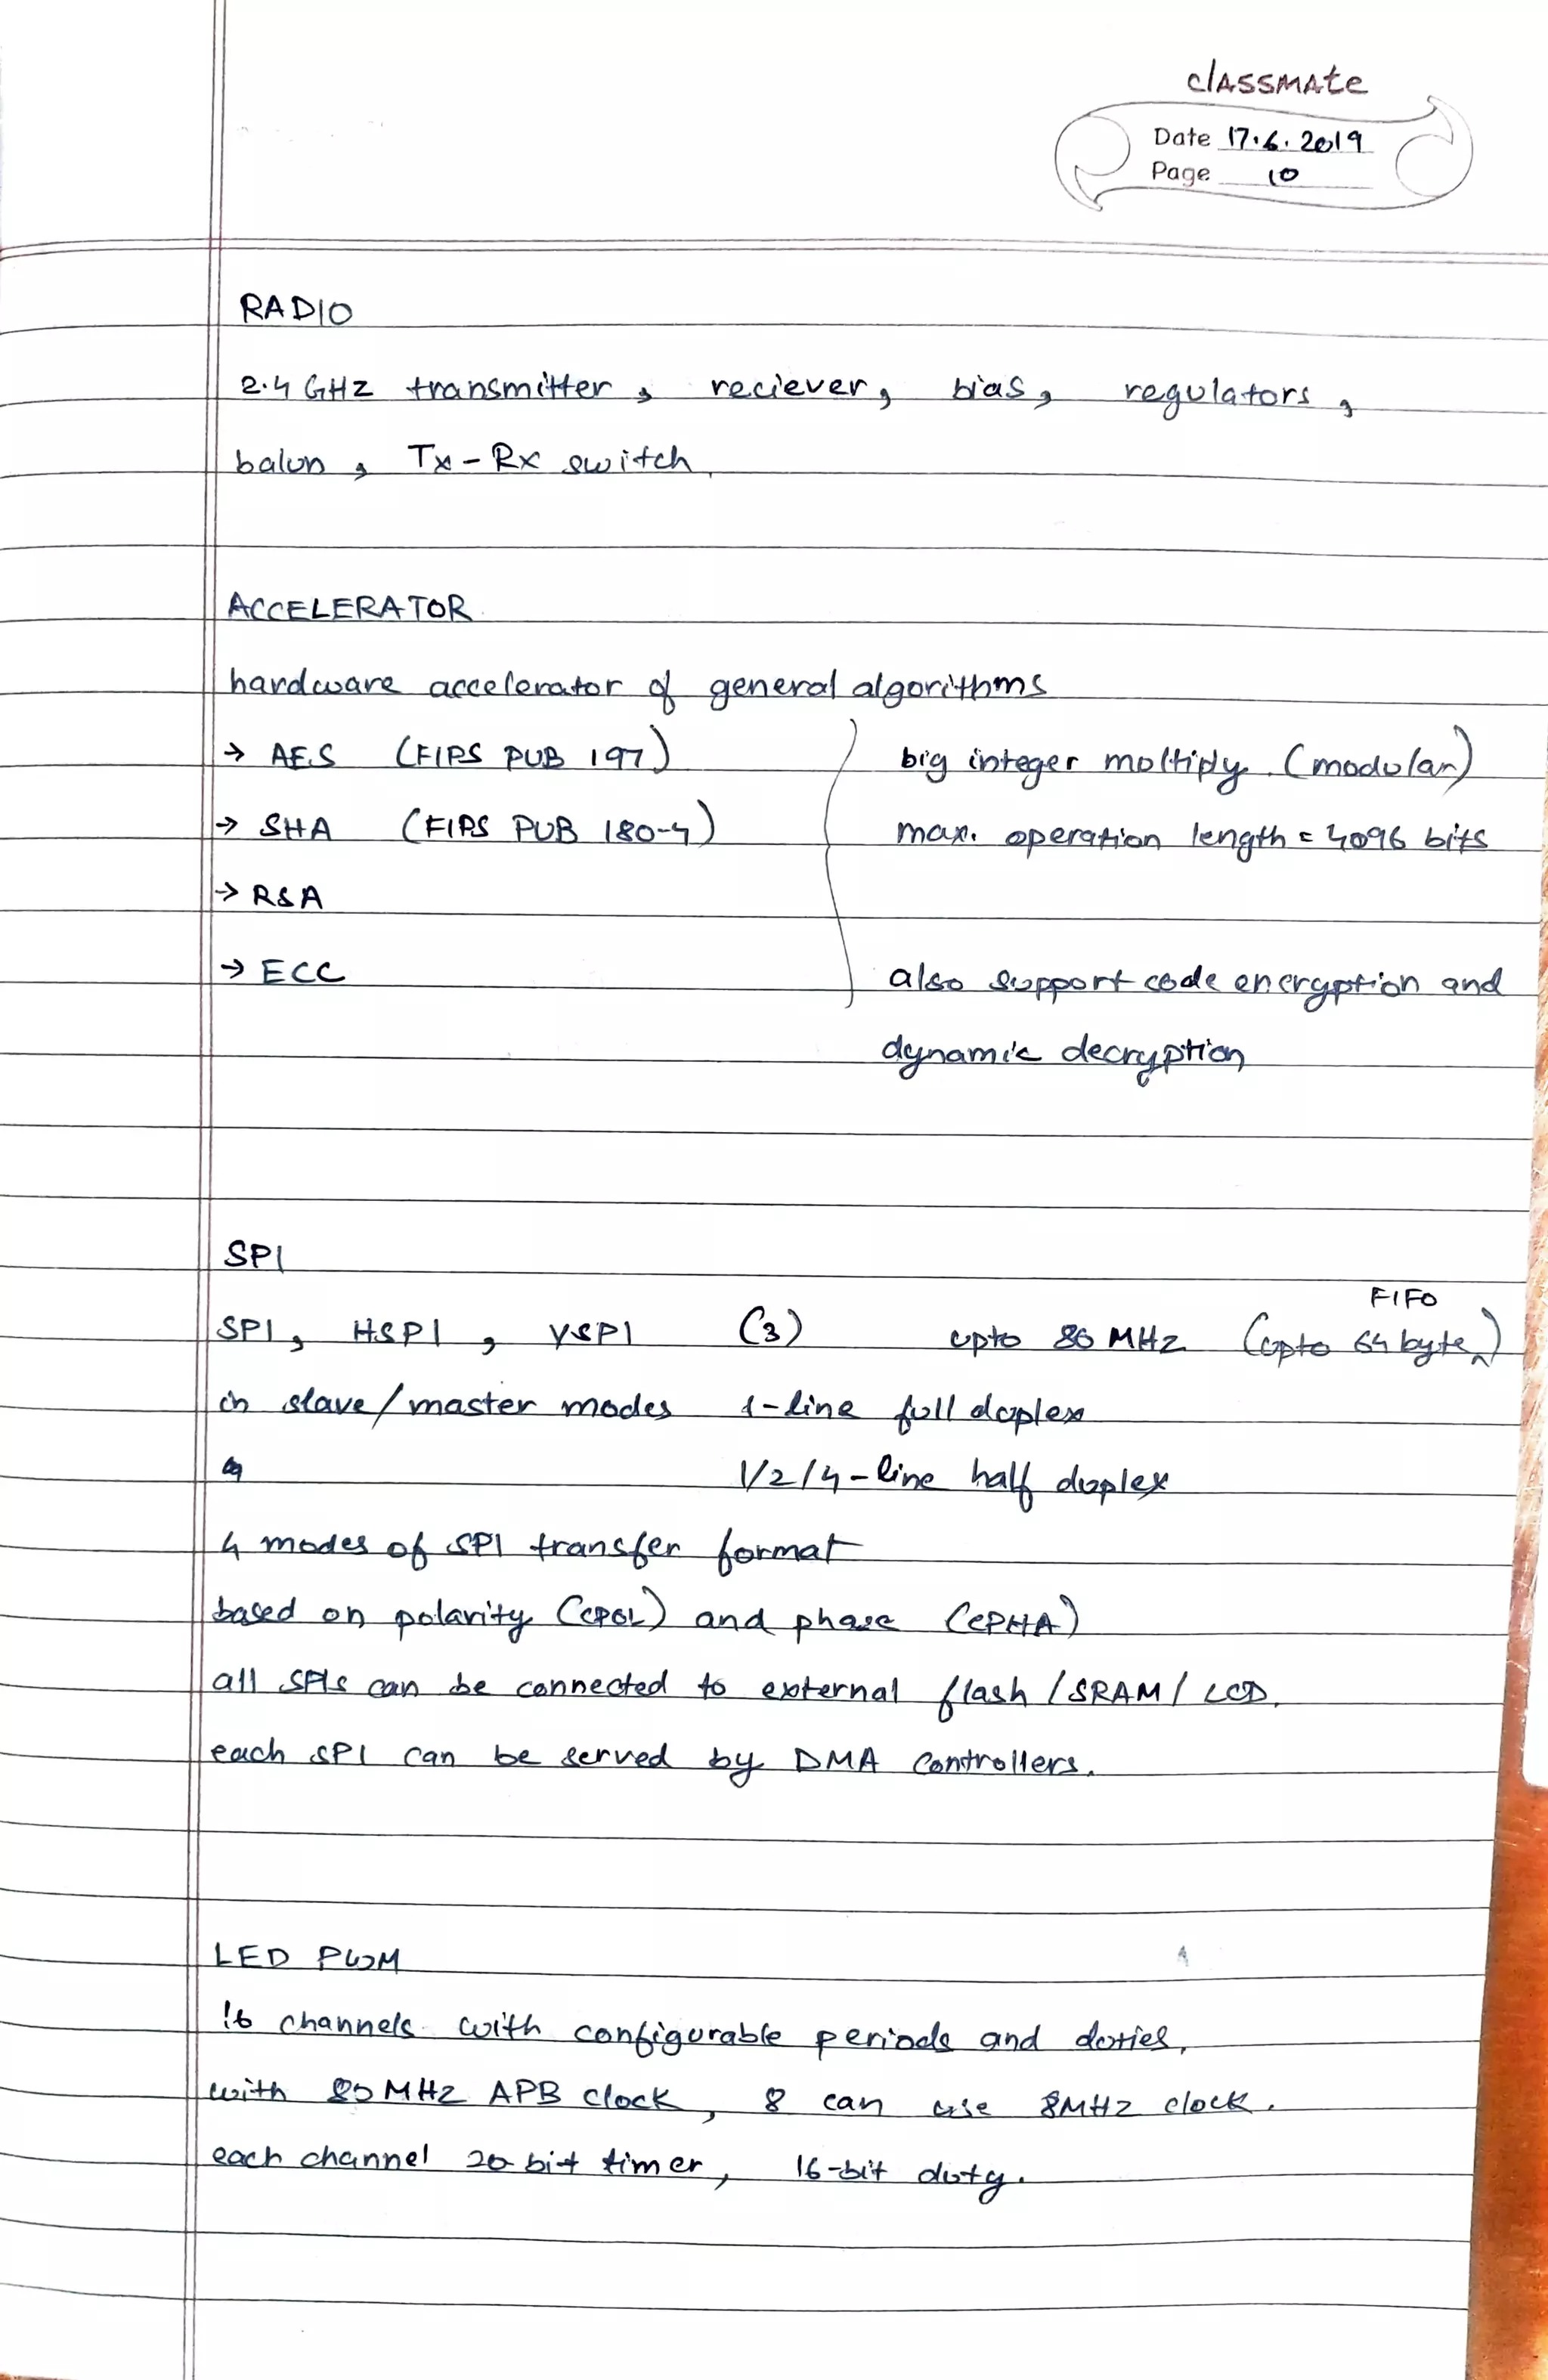 classmate
Date 17.6.2019
Page 10
RADIO
2.4 GHz transmitter, reciever, bias, regulators,
balun, Tx-Rx switch
ACCELERATOR
hardware accelerator of general algorithms
→ AES (FIPS PUB 197) big integer multiply (modular)
→ SHA (FIPS PUB 180-4) max. operation length = 4096 bits
→ RSA
→ ECC also support code encryption and
dynamic decryption
SPI
FIFO
SPI, HSPI, VSPI (3) upto 80 MHz (upto 64 byte)
in slave/master modes 1-line full duplex
1/2/4-line half duplex
4 modes of SPI transfer format
based on polarity (CPOL) and phase (CPHA)
all SPIs can be connected to external flash/SRAM/LCD.
each SPI can be served by DMA controllers.
LED PWM
16 channels with configurable periods and duties,
with 80 MHz APB clock, 8 can use 8MHz clock.
each channel 20-bit timer, 16-bit duty.